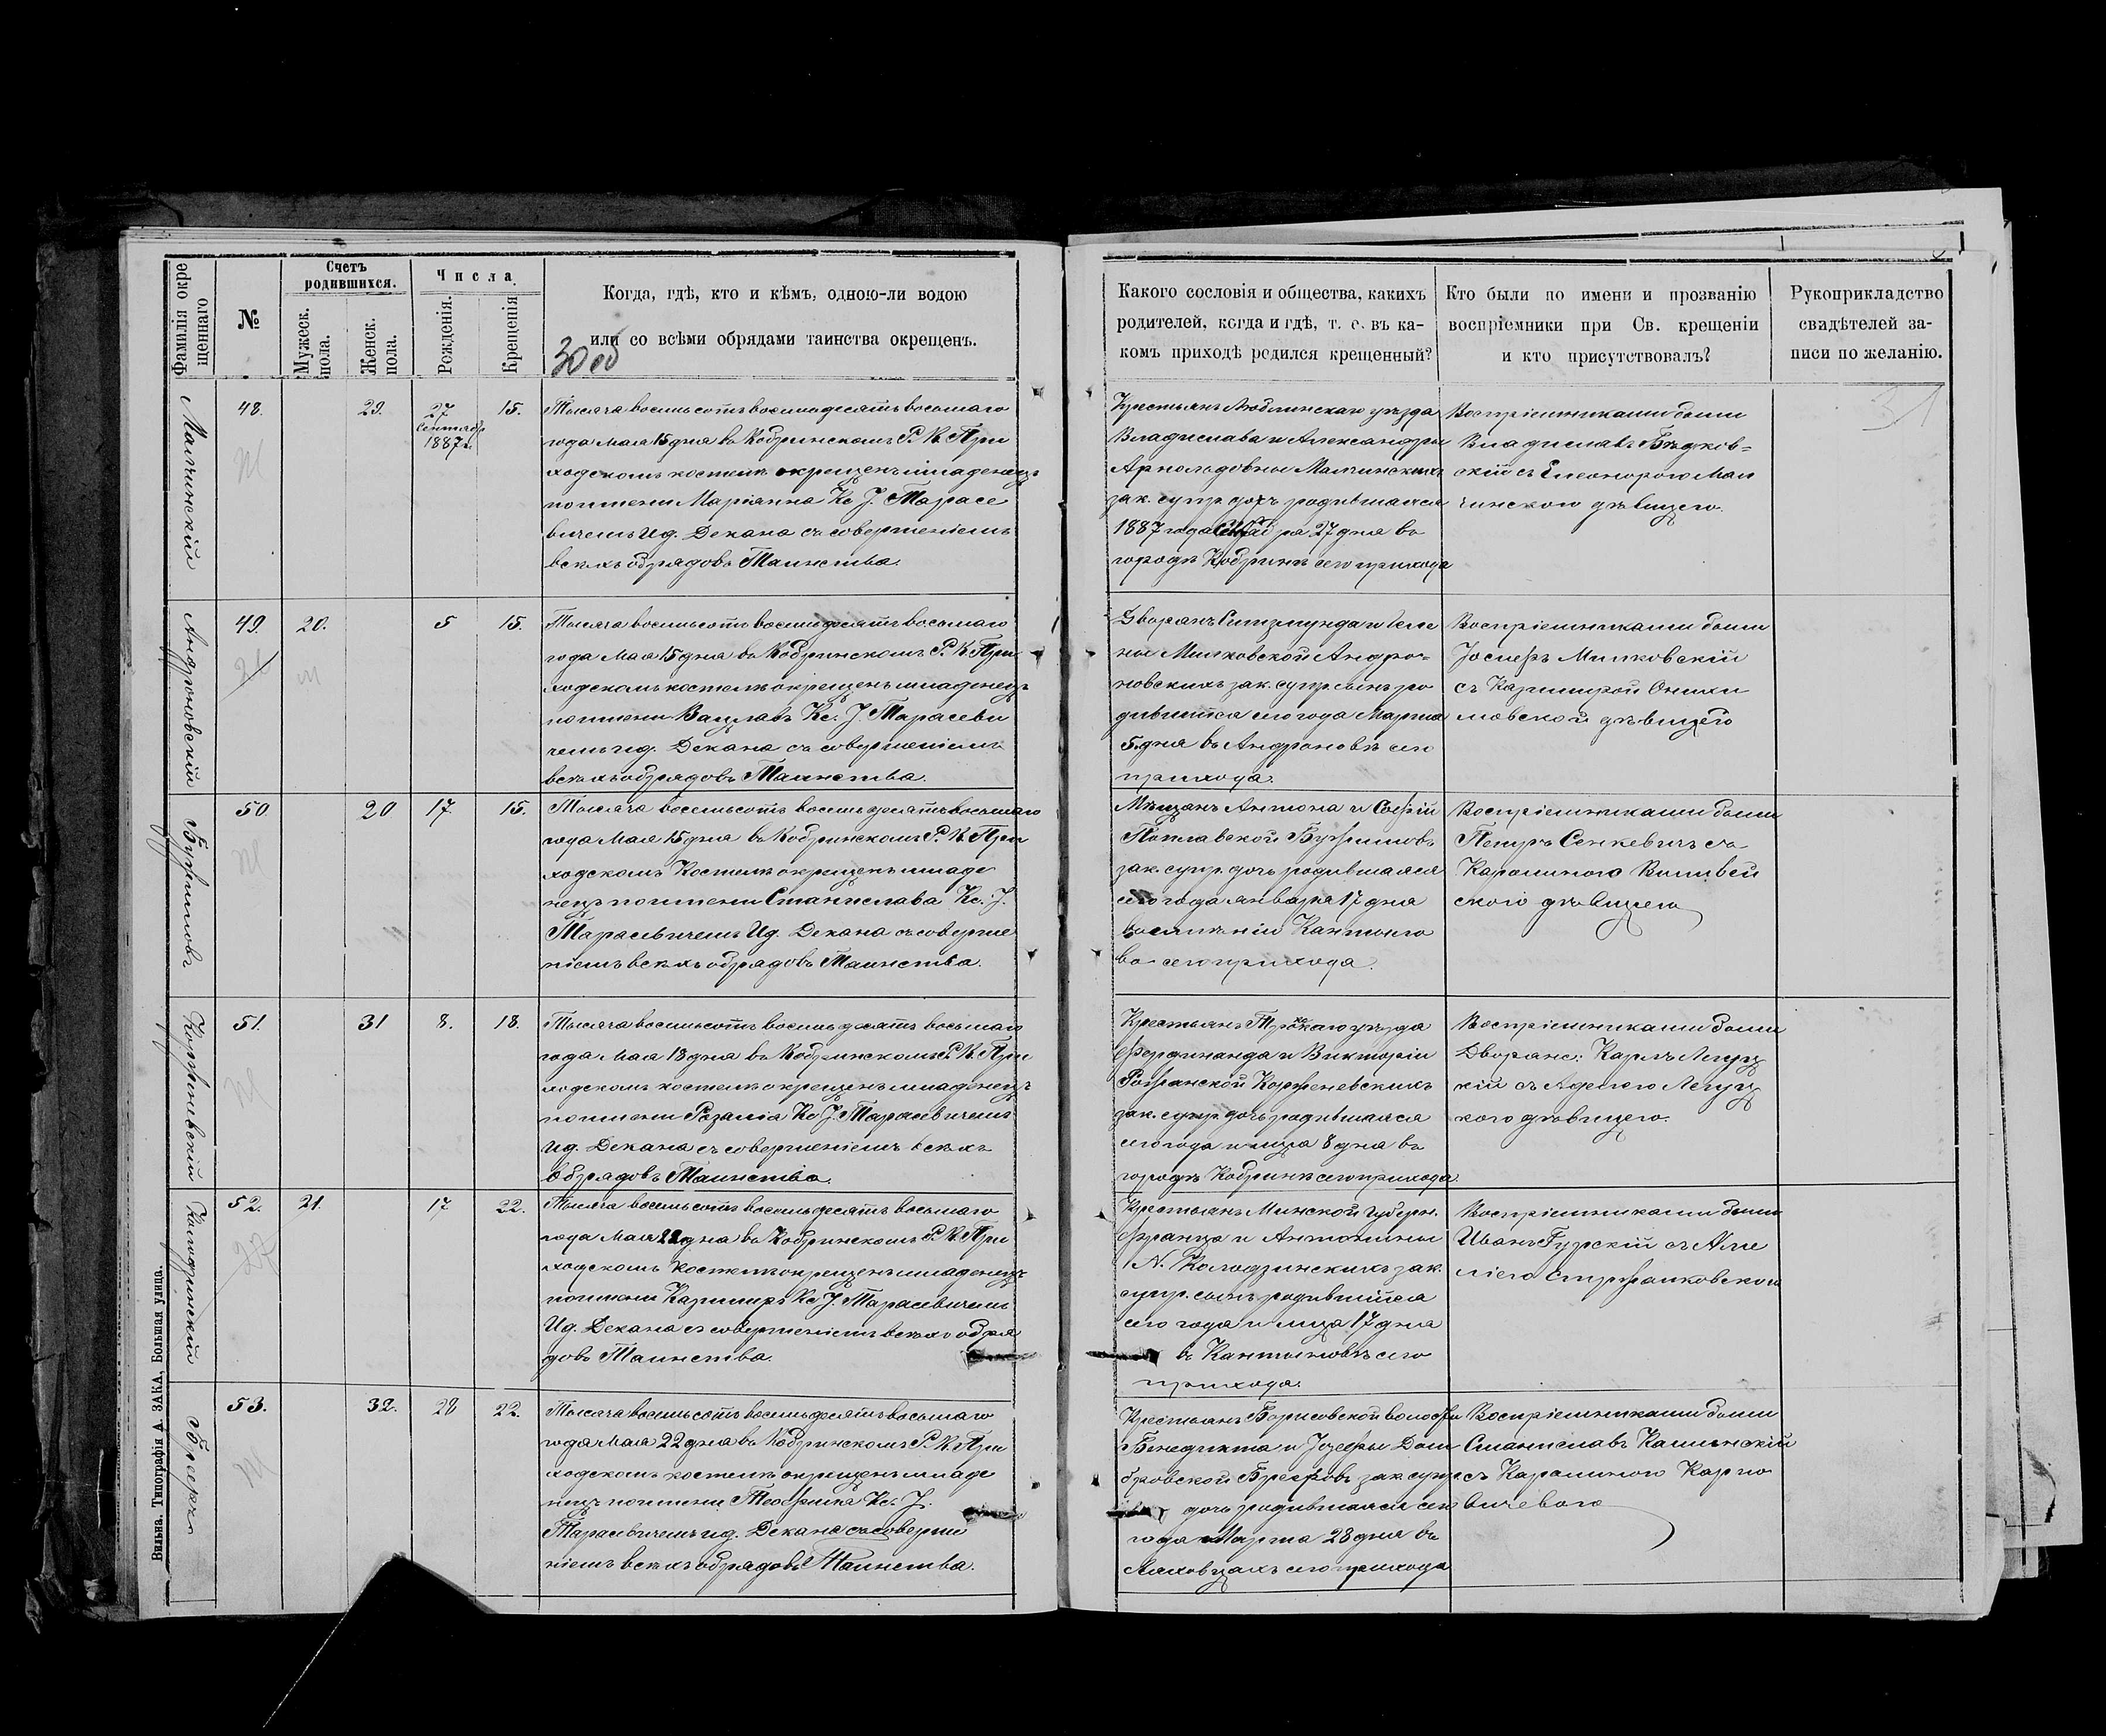 Фамилія окре
щеннаго
№
Счетъ
родившихся.
Мужеск.
пола.
Женск.
пола.
Числа.
Рожденія.
Крещенія
Когда, гдѣ, кто и кѣмъ, одною-ли водою
или со всѣми обрядами таинства окрещенъ.
Какого сословія и общества, какихъ
родителей, когда и гдѣ, т. е. въ ка-
комъ приходѣ родился крещенный?
Кто были по имени и прозванію
воспріемники при Св. крещеніи
и кто присутствовалъ?
Рукоприкладство
свидѣтелей за-
писи по желанію.
31
Малчинскій
48.
29.
27
Сентябр
1887 г.
15.
Тысяча восемьсотъ восемьдесятъ восьмаго
года Мая 15 дня въ Кобринскомъ Р. К. При
ходскомъ костелѣ окрещенъ младенецъ
по имени Маріанна Кс. J. Тарасе
вичемъ Ид. Декана съ совершеніемъ
всѣхъ обрядовъ Таинства.
Крестьянъ Люблинскаго уѣзда
Владислава и Александры
Арнольдовны Малчинскихъ
зак. супр. дочь родившаяся
1887 года ра 27 дня въ
городѣ Кобринѣ сего прихода
Воспріемниками были
Владиславъ Бѣдков-
скій съ Елеонорою Мал
чинскою дѣвицею.
Андроновскій
49.
20.
5
15.
Тысяча восемьсотъ восемьдесятъ восьмаго
года Мая 15 дня въ Кобринскомъ Р. К. При
ходскомъ костелѣ окрещенъ младенецъ
по имени Вацлавъ Кс. J. Тарасеви
чемъ ид. Декана съ совершеніемъ
всѣхъ обрядовъ Таинства.
Дворянъ Сигизмунда и Геле
ны Милковской Андро-
новскихъ зак. супр. сынъ ро
дившійся сего года Марта
5 дня въ Андроновѣ сего
прихода.
Воспріемниками были
Јосифъ Милковскій
съ Казимирой
дѣвицею
50
20
17.
15.
Тысяча восемьсотъ восемьдесятъ восьмаго
года Мая 15 дня въ Кобринскомъ Р. К. При
ходскомъ Костелѣ окрещенъ младе
нецъ по имени Станислава Кс. J.
Тарасевичемъ Ид. Декана съ соверше
ніемъ всѣхъ обрядовъ Таинства.
Мѣщанъ Антона и Софіи
зак. супр. дочь родившаяся
сего года января 17 дня
въ имѣніи
сего прихода.
Воспріемниками были
Петръ Сенкевичъ съ
Каролиною
дѣвицею
51.
31
8.
18.
Тысяча восемьсотъ восемьдесятъ восьмаго
года Мая 18 дня въ Кобринскомъ Р. К. При
ходскомъ костелѣ окрещенъ младенецъ
по имени Розалія Кс J. Тарасевичемъ
ид. Декана съ совершеніемъ всѣхъ
обрядовъ Таинства.
Крестьянъ Трокскаго уѣзда
Фердинанда и Викторіи
зак. супр. дочь родившаяся
сего года м-ца 8 дня въ
городѣ Кобринѣ сего прихода
Воспріемниками были
Дворяне: Карлъ
кій съ Аделею
кою дѣвицею.
Колодзинскій
52.
21.
17
22.
Тысяча восемьсотъ восемьдесятъ восьмаго
года Мая 22 дня въ Кобринскомъ Р. К. При
ходскомъ костелѣ окрещенъ младенецъ
по имени Казимиръ Кс J. Тарасевичемъ
Ид. Декана съ совершеніемъ всѣхъ обря
довъ Таинства.
Крестьянъ Минской губерн.
Франца и Антонины
N. Колодзинскихъ зак.
супр. сынъ родившійся
сего года м-ца 17 дня
въ сего
прихода.
Воспріемниками были
Иванъ Гурскій съ Аме
ліею
53.
32.
28
22.
Тысяча восемьсотъ восемьдесятъ восьмаго
года Мая 22 дня въ Кобринскомъ Р. К. При
ходскомъ костелѣ окрещенъ младе
нецъ по имени Теофиля Кс. J.
Тарасевичемъ ид. Декана съ соверше
ніемъ всѣхъ обрядовъ Таинства.
Крестьянъ Борисовской волости
Бенедикта и Јозефы Дом
бровской зак. супр.
дочь родившаяся сего
года Марта 28 дня въ
Ляховцахъ сего прихода
Воспріемниками были
Станиславъ Калинскій
съ Каролиною Карпо
вичевою
Вильна. Типографія А ЗАКА, Большая улица.